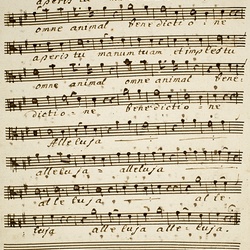 aperis tu
omne animal benedictio ne
aperis tu manum tuam et imples tu
omne animal omne animal bene
dictio ne benedictio ne
Alleluja
alleluja alleluja
alleluja al le
luja alleluja alleluja.